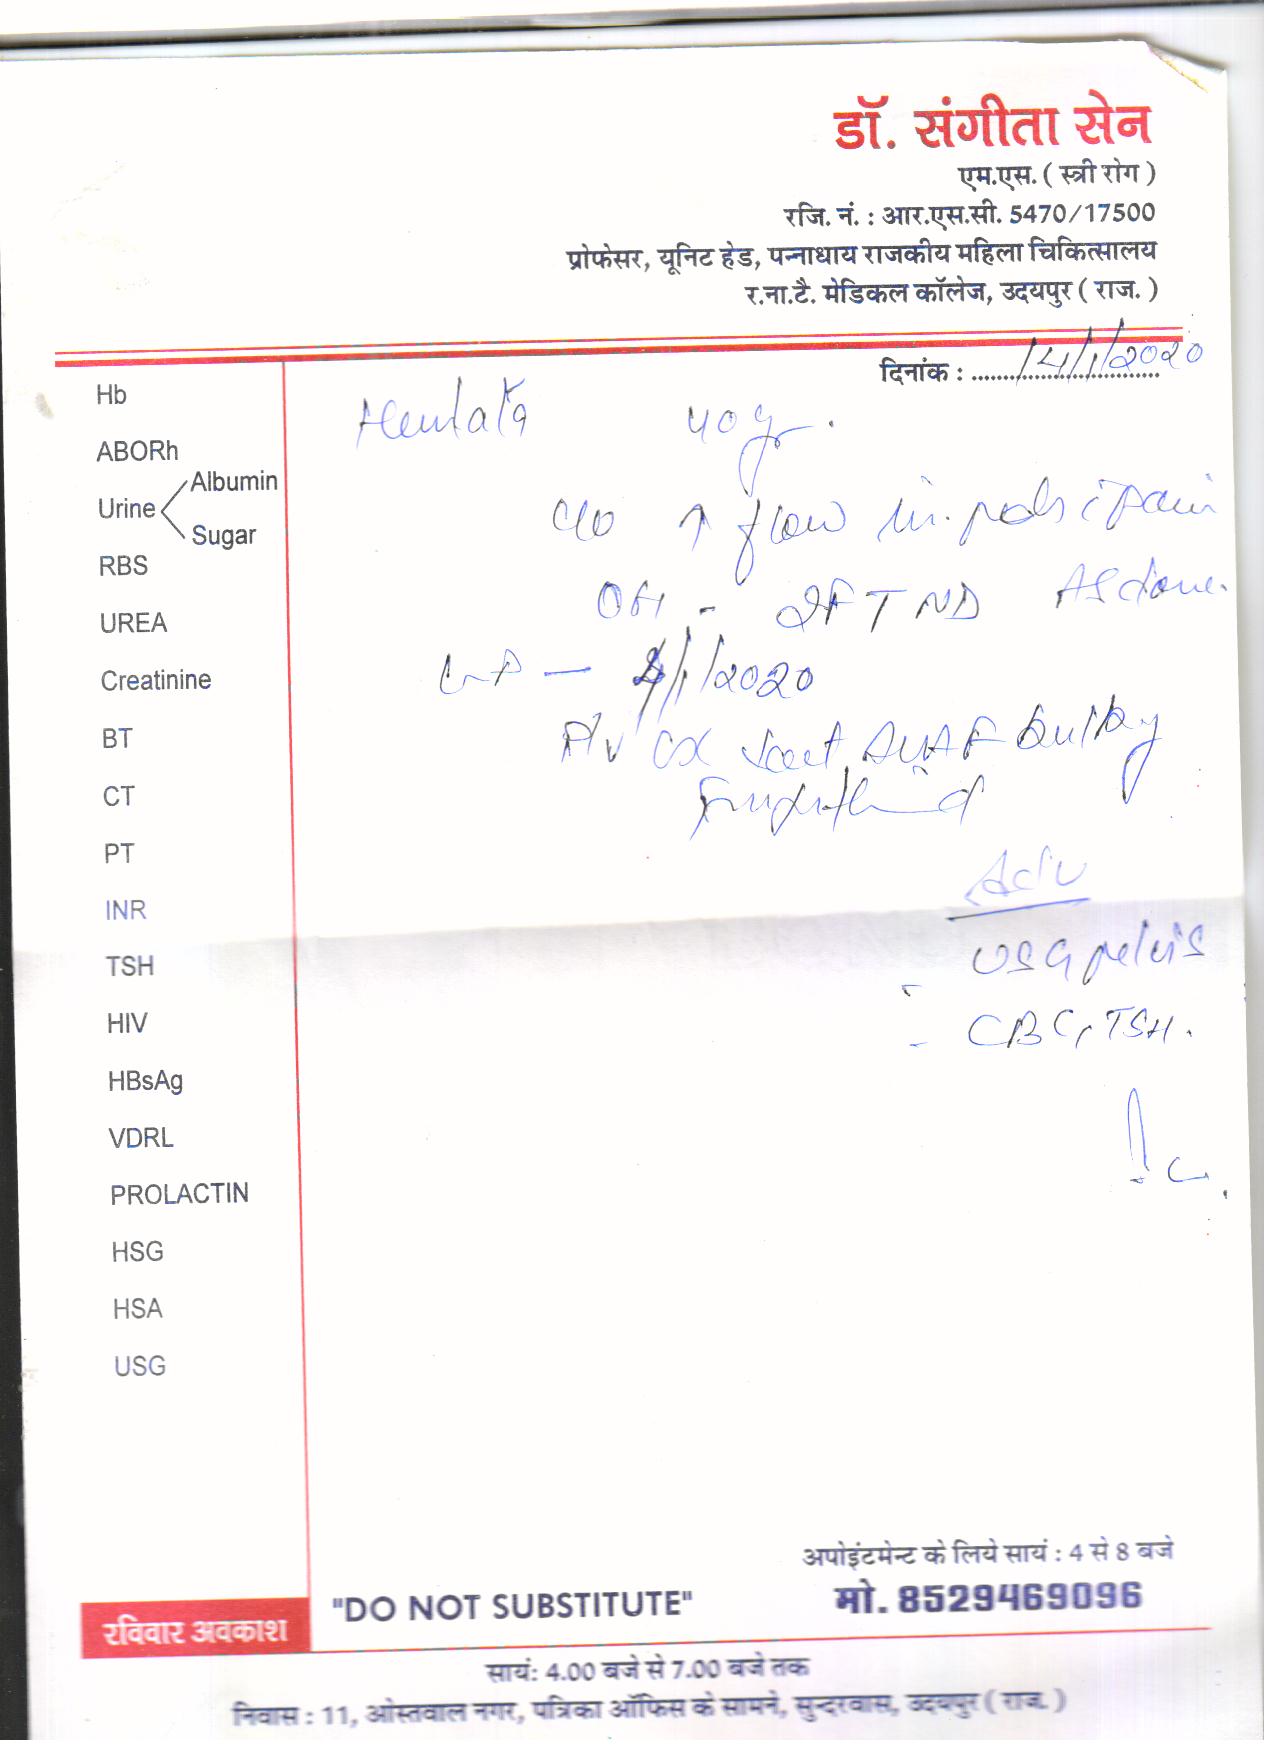 डॉ. संगीता सेन
एम.एस. ( स्त्री रोग )
रजि. नं. : आर.एस.सी. 5470/17500
प्रोफेसर, यूनिट हेड, पन्नाधाय राजकीय महिला चिकित्सालय
र.ना.टै. मेडिकल कॉलेज, उदयपुर ( राज. )
दिनांक : 14/1/2020
Hb
ABORh
Urine
Albumin
Sugar
RBS
UREA
Creatinine
BT
CT
PT
INR
TSH
HIV
HBsAg
VDRL
PROLACTIN
HSG
HSA
USG
40 yr.
c/o ↑ flow in pain
OH - 2FTND done.
/1/2020
P/V CX bulky
Adv
USG pelvis
- CBC, TSH.
अपोइंटमेन्ट के लिये सायं : 4 से 8 बजे
"DO NOT SUBSTITUTE"
मो. 8529469096
रविवार अवकाश
सायं: 4.00 बजे से 7.00 बजे तक
निवास : 11, ओस्तवाल नगर, पत्रिका ऑफिस के सामने, सुन्दरवास, उदयपुर ( राज. )